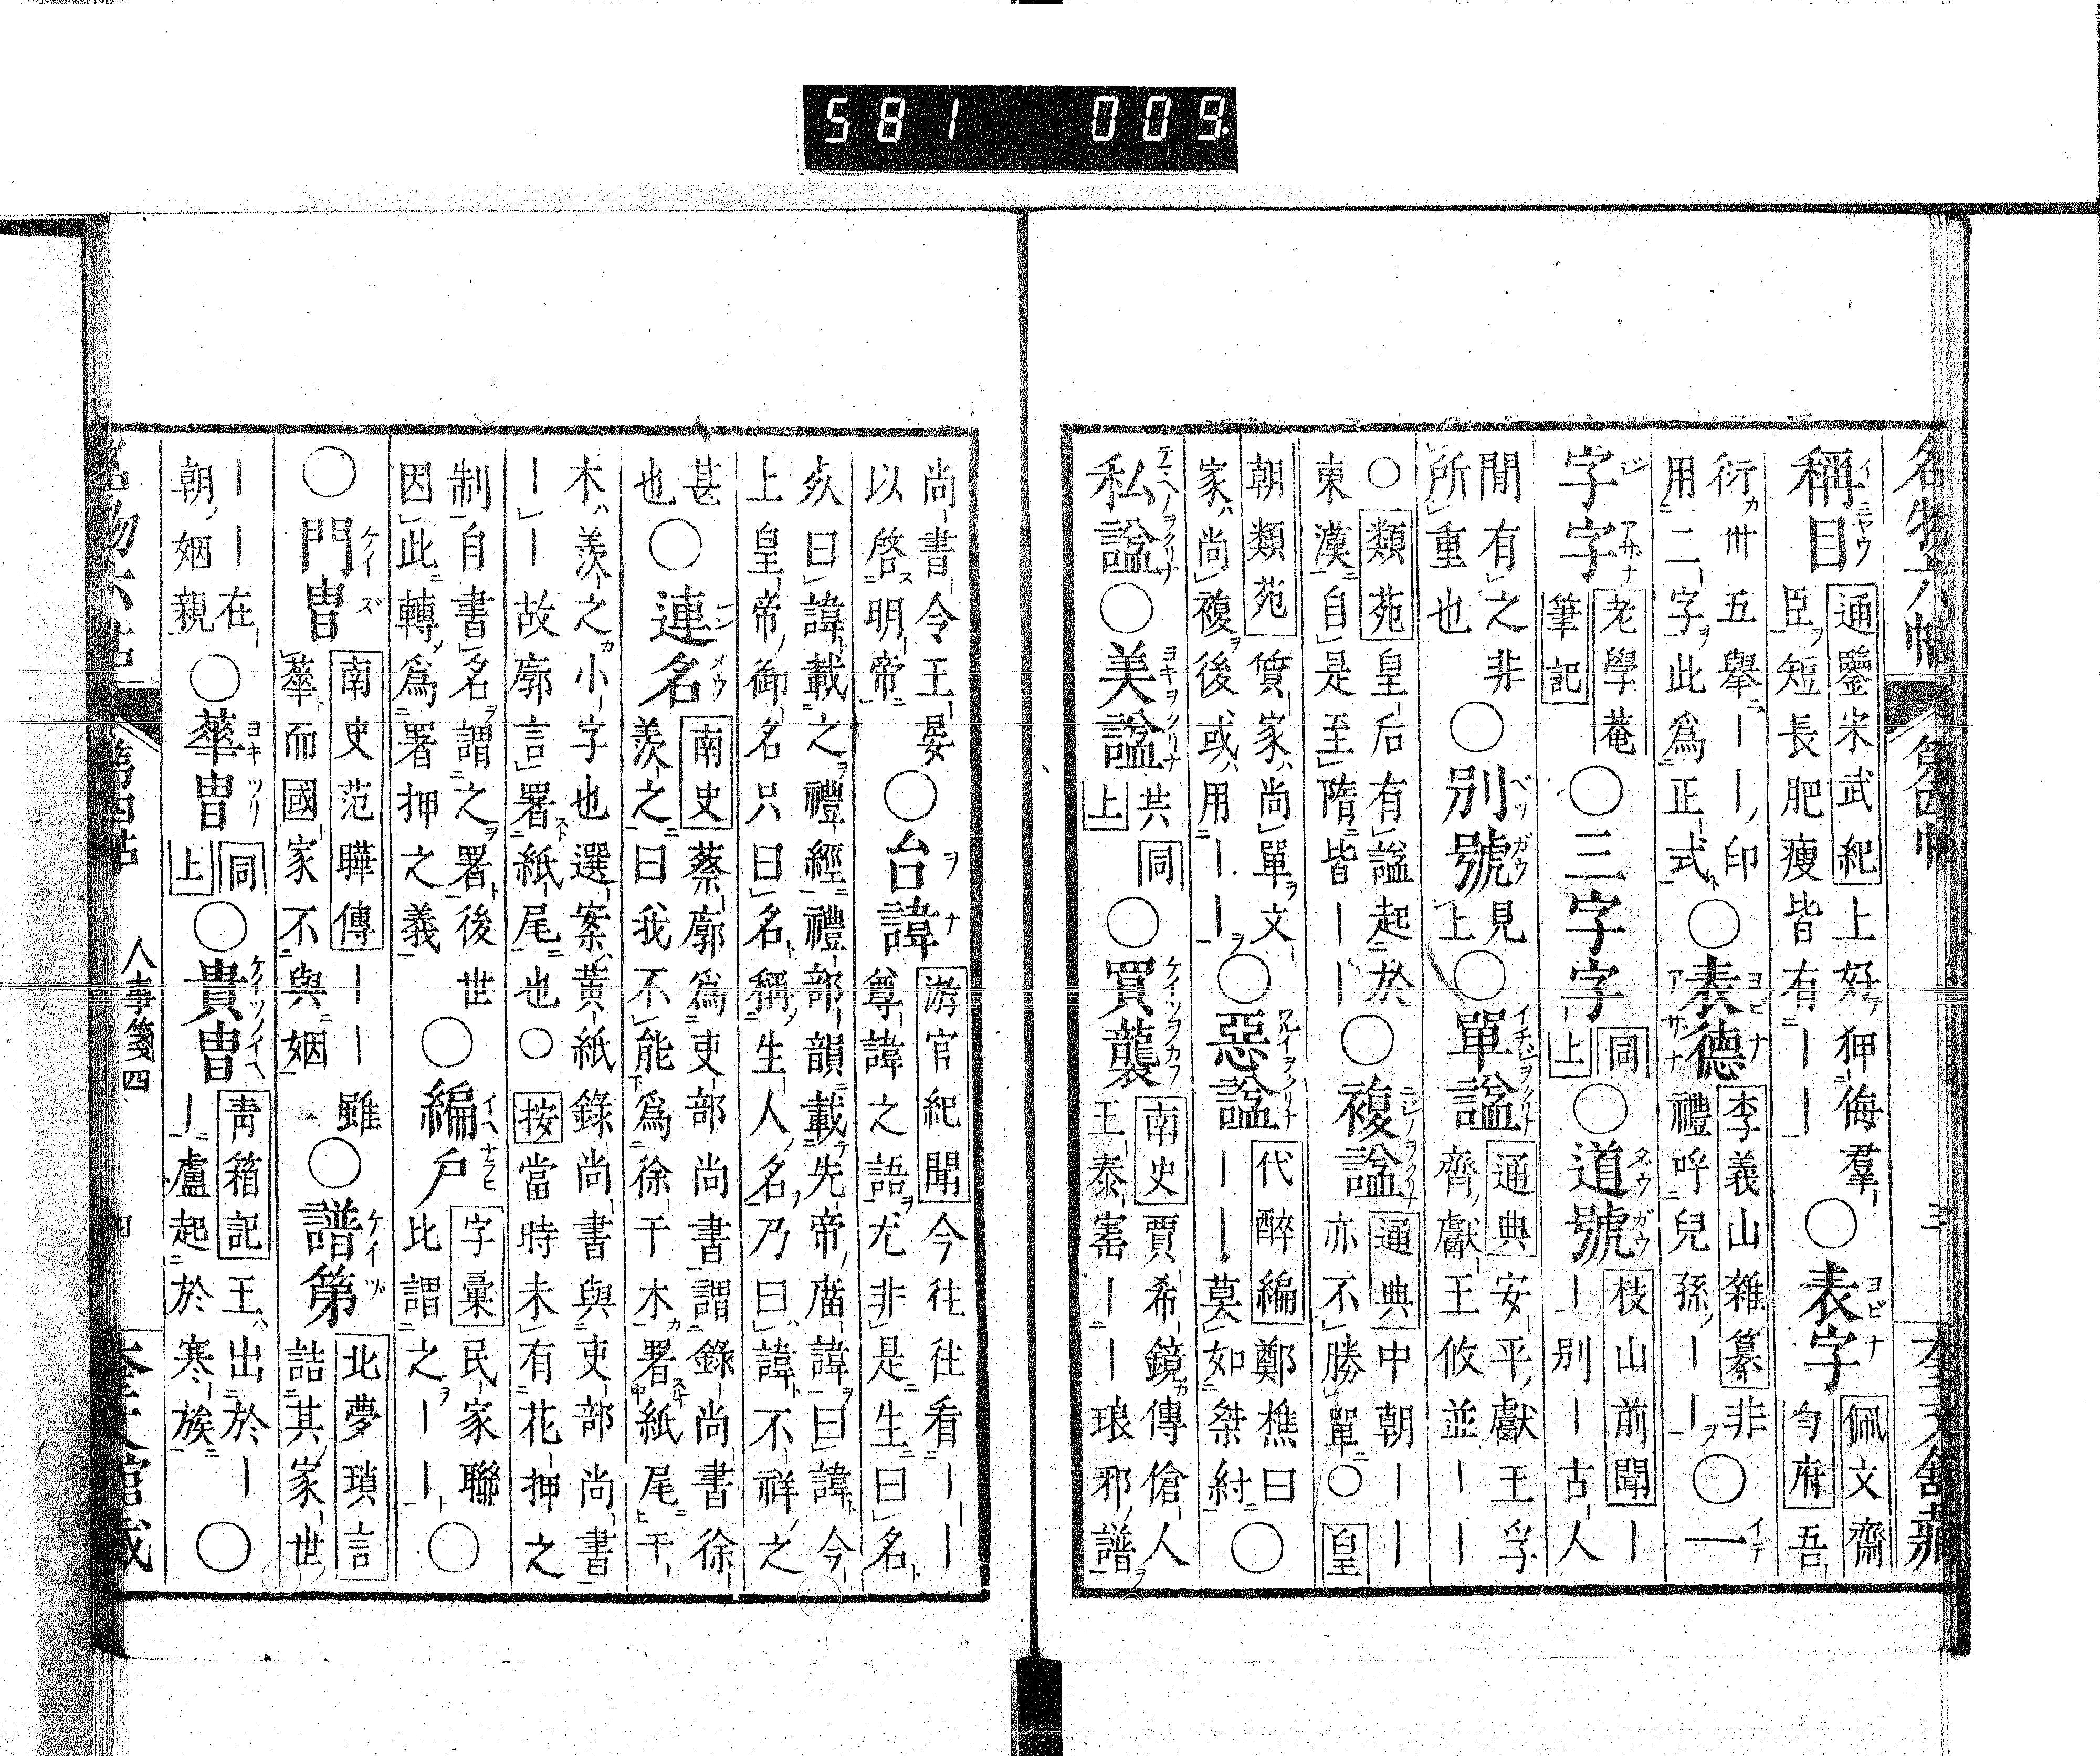 名物六帖 第四帖 三 奎文舘藏
稱目 通鑒宋武紀 上好狎侮羣臣短長肥瘦皆有｜｜ ○表字 佩文齋匀府 吾
衍卅五舉｜｜印用二字此爲正式 ○表德 李義山雜纂 非禮呼兒孫｜｜ ○一
字字 老學菴筆記 ○三字字 同上 ○道號 枝山前聞 ｜｜別｜古人
間有之非所重也 ○別號 見上 ○單諡 通典 安平獻王孚齊獻王攸並｜｜
○類苑 皇后有諡起於東漢自是至隋皆｜｜ ○複諡 通典 中朝｜｜亦不勝單○皇
朝類苑 質家尚單文家尚複後或用｜｜ ○惡諡 代醉編 鄭樵曰｜｜莫如桀紂 ○
私諡 ○美諡 共同上 ○買襲 南史 賈希鏡傳傖人王泰寳｜｜琅邪譜
尚書令王晏以啓明帝 ○台諱 游官紀聞 今往往看｜｜尊諱之語尤非是生曰名
歿曰諱載之禮經禮部韻載先帝廟諱曰諱今上皇帝御名只曰名稱生人名乃曰諱不祥之
甚也 ○連名 南史 蔡廓爲吏部尚書謂錄尚書徐羨之曰我不能爲徐干木署紙尾干
木羨之小字也選案黃紙錄尚書與吏部尚書｜｜故廓言署紙尾也○按當時未有花押之
制自書名謂之署後世因此轉爲署押之義 ○編戶 字彙 民家聯比謂之｜｜ ○
○門冑 南史范曄傳 ｜｜雖華而國家不與姻 ○譜第 北夢瑣言 詰其家世
｜｜在朝姻親 ○華冑 同上 ○貴冑 青箱記 王出於｜｜盧起於寒族 ○
名物六帖 第四帖 人事箋四 四 奎文館藏
581 009